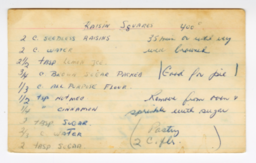 Raisin Squares 400°
2 C. Seedless Raisins 35 min or until very
2 C. Water well browned
2½ Tbsp
¾ C. Brown Sugar Packed (Good for pie)
⅓ C. All Purpose Flour
½ tsp Nutmeg Remove from oven &
" Cinnamon sprinkle with sugar
3 Tbsp Sugar
C. Water (Pastry
2 Tbsp Sugar 2 C.